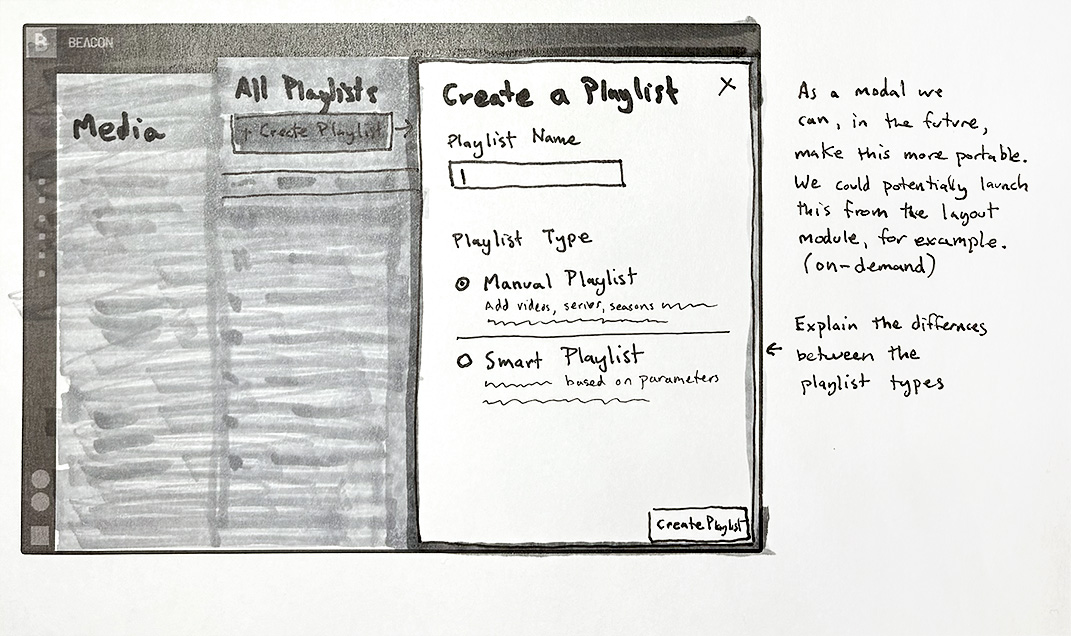 B BEACON
Media
All Playlists
+ Create Playlist
Create a Playlist X
Playlist Name
Playlist Type
Manual Playlist
Add videos, series, seasons
Smart Playlist
based on parameters
Create Playlist
As a modal we
can, in the future,
make this more portable.
We could potentially launch
this from the layout
module, for example.
(on-demand)
Explain the differnces
between the
playlist types